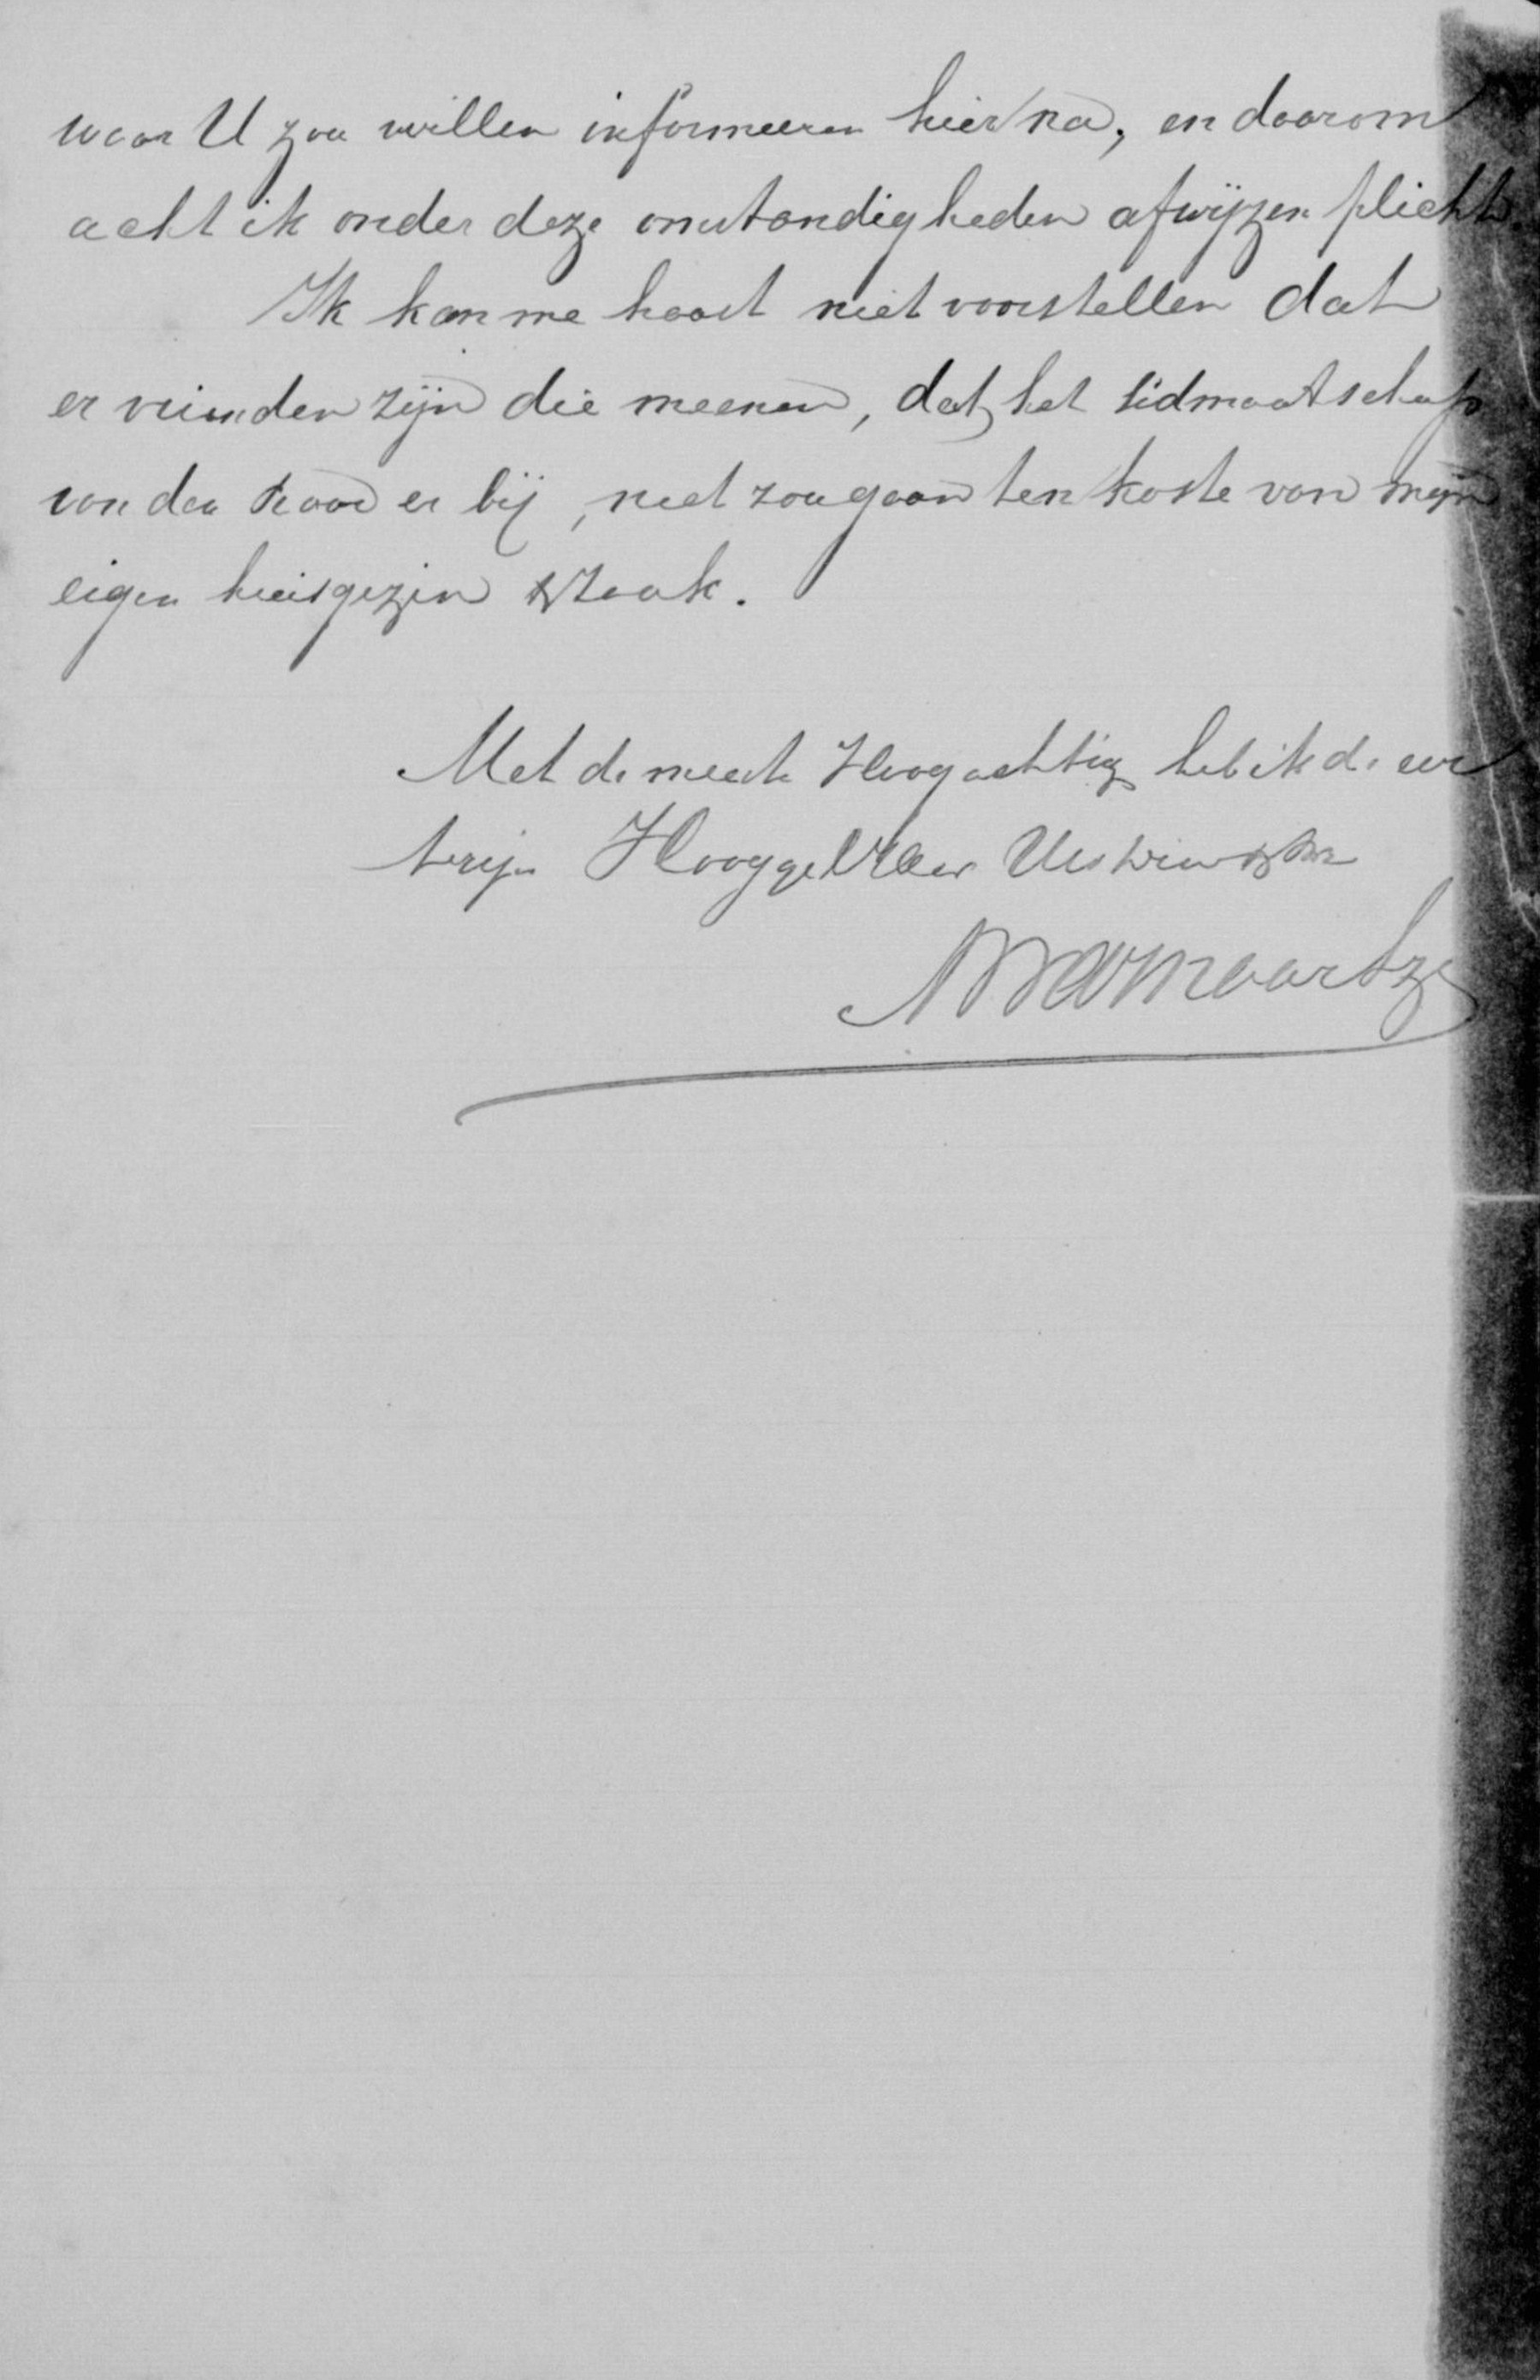 waar U zou willen informeeren hierna, en daarom
acht ik onder deze omstandigheden afwijzen plicht.
Ik kan me haast niet voorstellen dat
er vrienden zijn die meenen, dat het lidmaatschap
van den Raad er bij, niet zou gaan ten koste van mijn
eigen huisgezin & zaak.
Met de meeste Hoogachting heb ik de eer
te zijn Hooggel Heer Uw